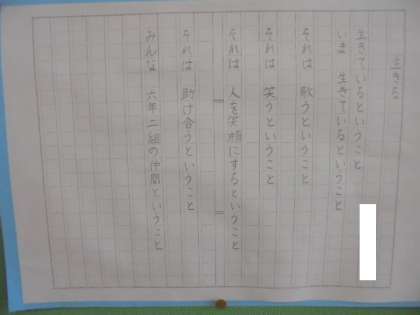 生きる
生きているということ
いま 生きているということ
それは 歌うということ
それは 笑うということ
それは 人を笑顔にするということ
それは 助け合うということ
みんな 六年二組の仲間ということ